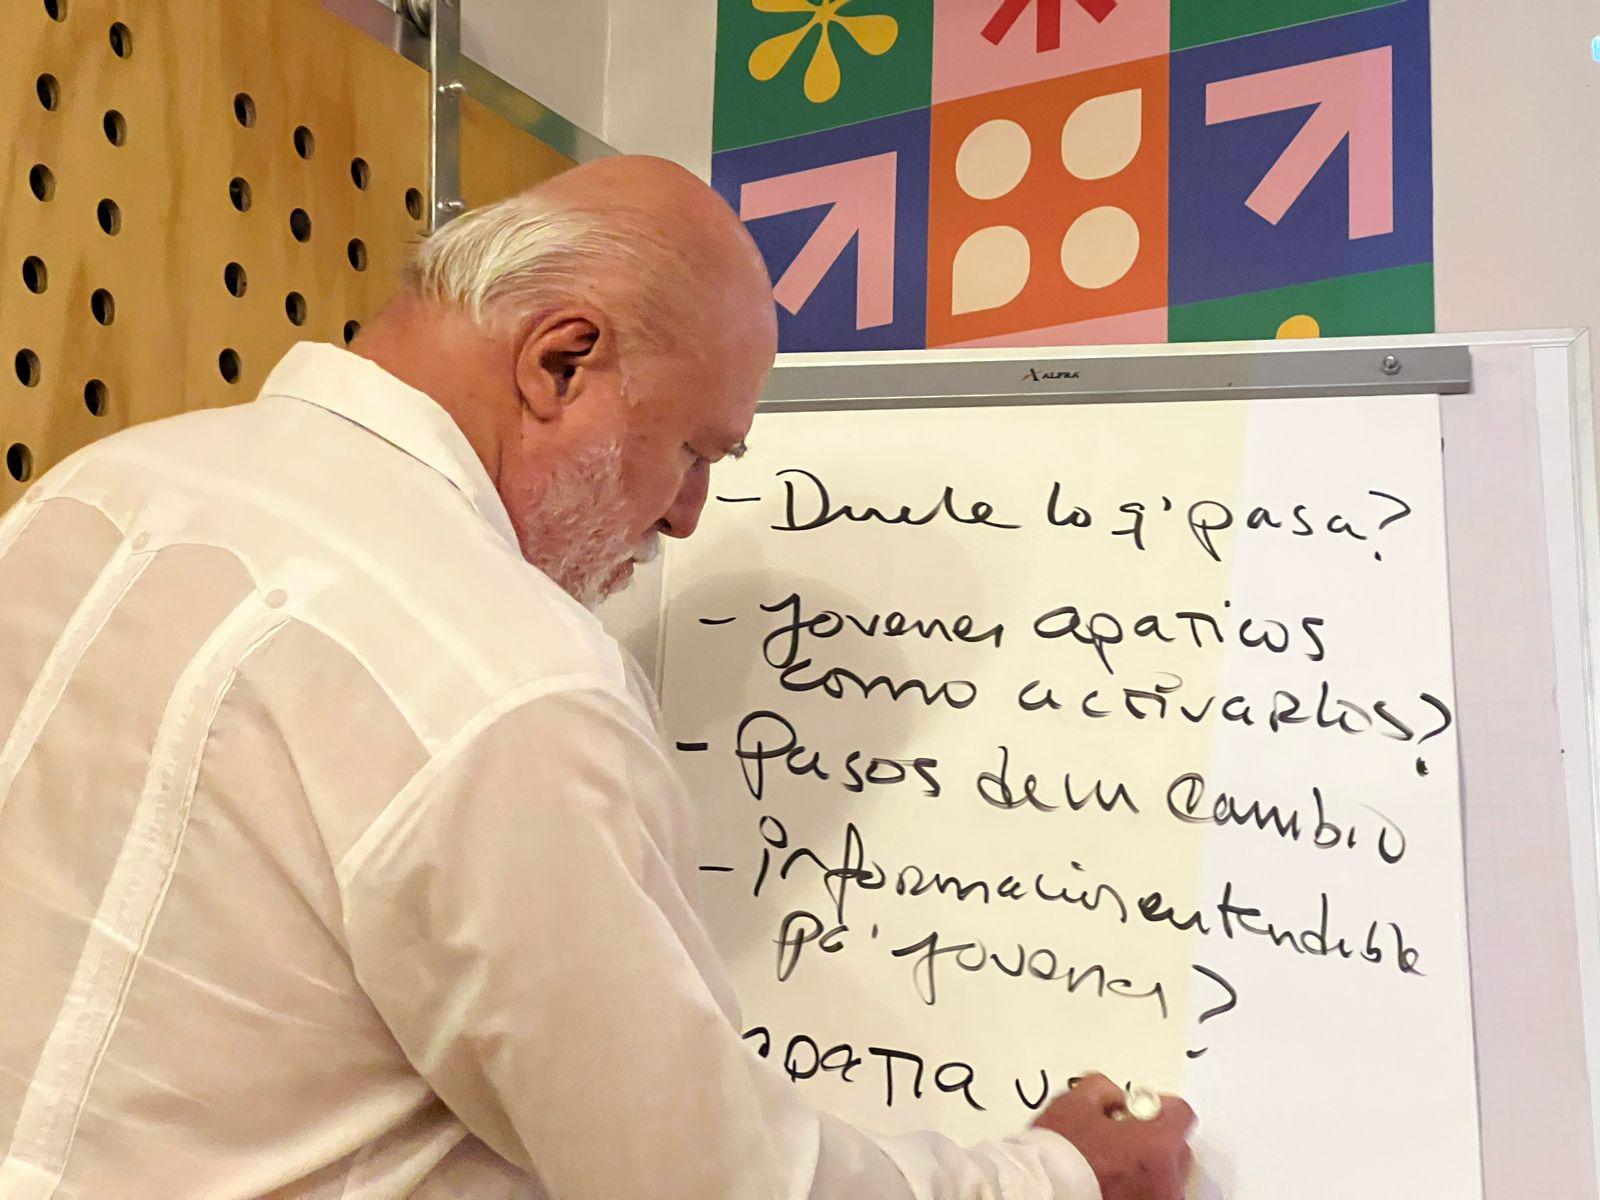 ALFRA
- Duele lo q' pasa?
- Jovenes apaticos
como activarlos?
- Pasos de un Cambio
- informacion entendible
pa' jovenes?
apatia